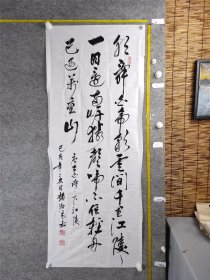 朝辭白帝彩雲間千里江陵
一日還兩岸猿聲啼不住輕舟
已過萬重山
李白詩下江陵
己亥年